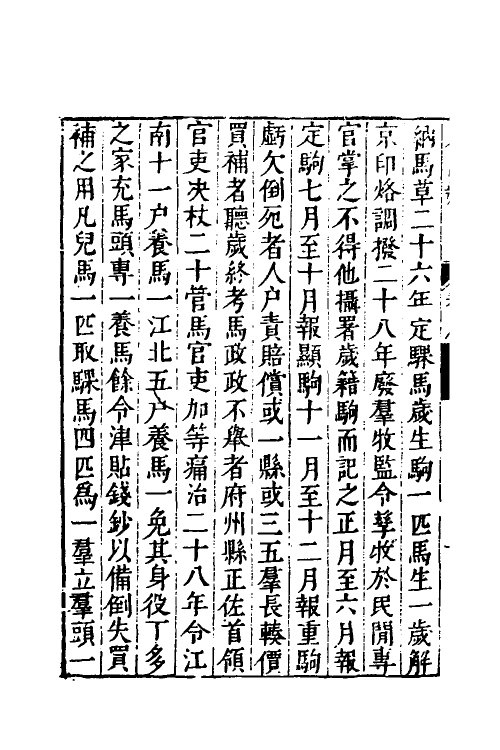 納馬草二十六年定騍馬歲生駒一匹馬生一歲解
京印烙調撥二十八年廢羣牧監令孳牧於民間專
官掌之不得他攝署歲籍駒而記之正月至六月報
定駒七月至十月報顯駒十一月至十二月報重駒
虧欠倒死者人户責賠償或一縣或三五羣長輳價
買補者聽歲終考馬政政不舉者府州縣正佐首領
官吏决杖二十管馬官吏加等痛治二十八年令江
南十一户養馬一江北五户養馬一免其身役丁多
之家充馬頭專一養馬餘令津貼錢鈔以備倒失買
補之用凡兒馬一匹取騍馬四匹爲一羣立羣頭一